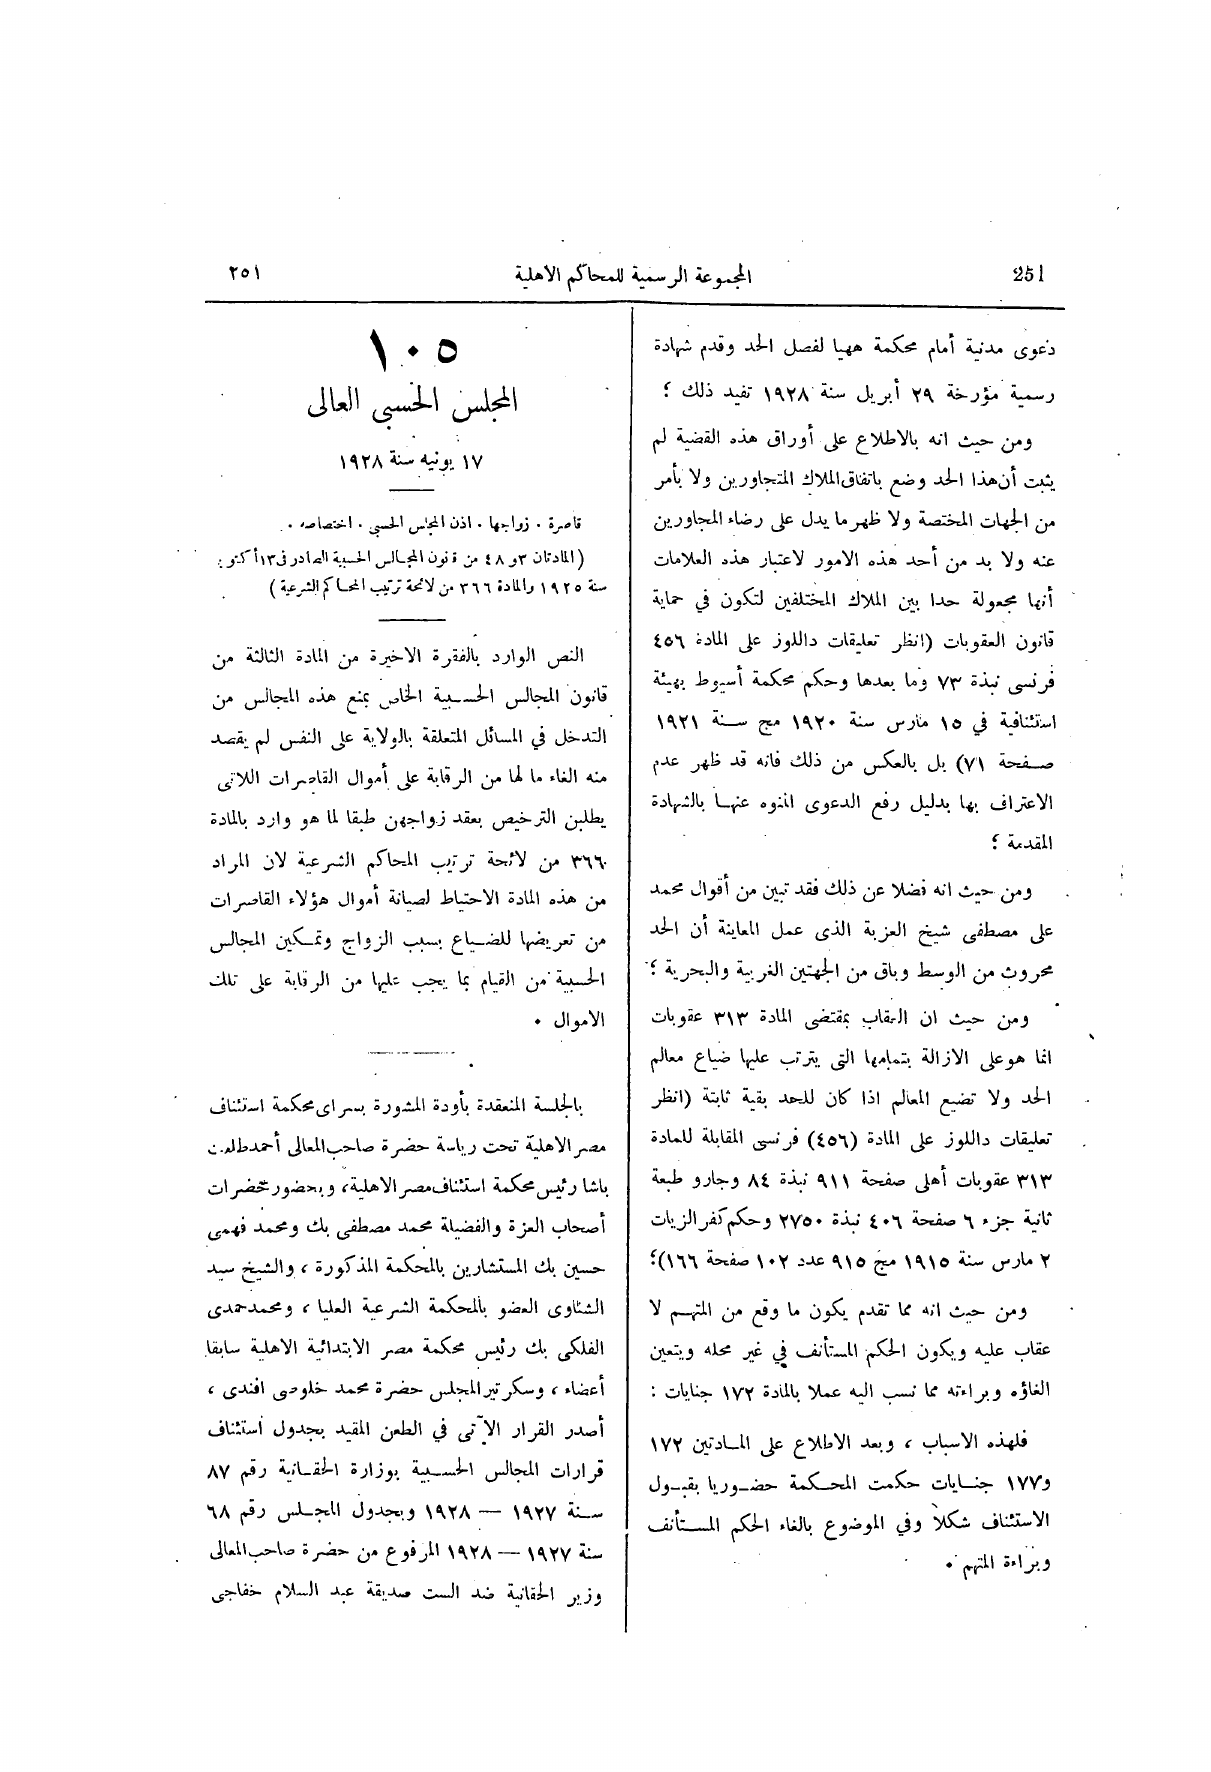 251 المجموعة الرسمية للمحاكم الاهلية ٢٥١
دعوى مدنية أمام محكمة ههيا لفصل الحد وقدم شهادة
رسمية مؤرخة ٢٩ أبريل سنة ١٩٢٨ تفيد ذلك ؛
ومن حيث انه بالاطلاع على أوراق هذه القضية لم
يثبت أن هذا الحد وضع باتفاق الملاك المتجاورين ولا بأمر
من الجهات المختصة ولا ظهر ما يدل على رضاء المجاورين
عنه ولا بد من أحد هذه الامور لاعتبار هذه العلامات
أنها مجعولة حدا بين الملاك المختلفين لتكون في حماية
قانون العقوبات (انظر تعليقات داللوز على المادة ٤٥٦
فرنسى نبذة ٧٣ وما بعدها وحكم محكمة أسيوط بهيئة
استئنافية في ١٥ مارس سنة ١٩٢٠ مج سنة ١٩٢١
صفحة ٧١) بل بالعكس من ذلك فانه قد ظهر عدم
الاعتراف بها بدليل رفع الدعوى المنوه عنها بالشهادة
المقدمة ؛
ومن حيث انه فضلا عن ذلك فقد تبين من أقوال محمد
على مصطفى شيخ العزبة الذى عمل المعاينة أن الحد
محروث من الوسط وباق من الجهتين الغربية والبحرية ؛
ومن حيث ان العقاب بمقتضى المادة ٣١٣ عقوبات
انما هو على الازالة بتمامها التى يترتب عليها ضياع معالم
الحد ولا تضيع المعالم اذا كان للحد بقية ثابتة (انظر
تعليقات داللوز على المادة (٤٥٦) فرنسى المقابلة للمادة
٣١٣ عقوبات أهلى صفحة ٩١١ نبذة ٨٤ وجارو طبعة
ثانية جزء ٦ صفحة ٤٠٦ نبذة ٢٧٥٠ وحكم كفر الزيات
٢ مارس سنة ١٩١٥ مج ٩١٥ عدد ١٠٢ صفحة ١٦٦)؛
ومن حيث انه مما تقدم يكون ما وقع من المتهم لا
عقاب عليه ويكون الحكم المستأنف في غير محله ويتعين
الغاؤه وبراءته مما نسب اليه عملا بالمادة ١٧٢ جنايات :
فلهذه الاسباب ، وبعد الاطلاع على المادتين ١٧٢
و١٧٧ جنايات حكمت المحكمة حضوريا بقبول
الاستئناف شكلا وفي الموضوع بالغاء الحكم المستأنف
وبراءة المتهم .
١٠٥
المجلس الحسبى العالى
١٧ يونيه سنة ١٩٢٨
قاصرة . زواجها . اذن المجلس الحسبى . اختصاصه .
(المادتان ٣ و ٤٨ من قانون المجالس الحسبية الصادر فى ١٣ أكتوبر
سنة ١٩٢٥ والمادة ٣٦٦ من لائحة ترتيب المحاكم الشرعية)
النص الوارد بالفقرة الاخيرة من المادة الثالثة من
قانون المجالس الحسبية الخاص بمنع هذه المجالس من
التدخل في المسائل المتعلقة بالولاية على النفس لم يقصد
منه الغاء ما لها من الرقابة على أموال القاصرات اللاتى
يطلبن الترخيص بعقد زواجهن طبقا لما هو وارد بالمادة
٣٦٦ من لائحة ترتيب المحاكم الشرعية لان المراد
من هذه المادة الاحتياط لصيانة أموال هؤلاء القاصرات
من تعريضها للضياع بسبب الزواج وتمكين المجالس
الحسبية من القيام بما يجب عليها من الرقابة على تلك
الاموال .
بالجلسة المنعقدة بأودة المشورة بسراى محكمة استئناف
مصر الاهلية تحت رياسة حضرة صاحب المعالى أحمد طلعت
باشا رئيس محكمة استئناف مصر الاهلية، وبحضور حضرات
أصحاب العزة والفضيلة محمد مصطفى بك ومحمد فهمى
حسين بك المستشارين بالمحكمة المذكورة ، والشيخ سيد
الشناوى العضو بالمحكمة الشرعية العليا ، ومحمد حمدى
الفلكى بك رئيس محكمة مصر الابتدائية الاهلية سابقا
أعضاء ، وسكرتير المجلس حضرة محمد خلوصى افندى ،
أصدر القرار الآتى في الطعن المقيد بجدول استئناف
قرارات المجالس الحسبية بوزارة الحقانية رقم ٨٧
سنة ١٩٢٧ — ١٩٢٨ وبجدول المجلس رقم ٦٨
سنة ١٩٢٧ — ١٩٢٨ المرفوع من حضرة صاحب المعالى
وزير الحقانية ضد الست صديقة عبد السلام خفاجى